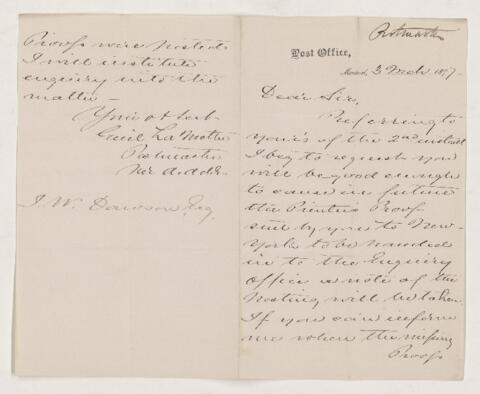 Postmaster
Post Office,
Montreal, 3 Mch 1877
Dear Sir,
Referring to
yours of the 2nd instant
I beg to request you
will be good enough
to cause in future
the Printers Proof
sent by you to New-
York to be handed
in to the Enquiry
office a note of the
Posting will be taken.
If you can inform
me when the missing
Proofs
Proofs were posted
I will institute
enquiry into the
matter -
Your obt Sert
La Mothe
Postmaster
J. W. Dawson, Esq